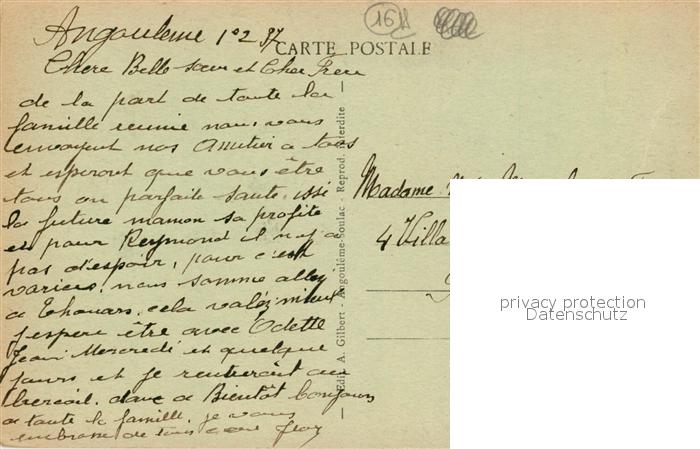 16
Angouleme 1°2 37
CARTE POSTALE
Chere Belle sœur et Cher Frere
de la part de toute la
famille reunie nous vous
envoyent nos Amitier a tous
et esperont que vous être
tous en parfaite sante. issi
la future maman sa profite
et pour Reymond il n'y a
pas d'espoir, pour c'est
varices. nous somme allez
a Thouars. cela valez mieux
j'espere être avec Odette
Jean Mercredi et quelque
jours et je rentrerait au
bercail. donc a Bientôt bonjours
a toute la famille. je vous
embrasse de tous cœur
Edit. A. Gilbert, Angoulême-Soulac - Reprod. interdite
Madame
4 Villa
privacy protection
Datenschutz